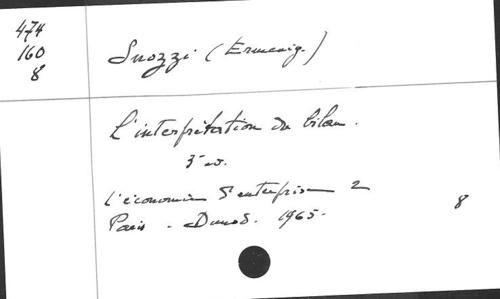 474
160
8
Snozzi (Ermenig.)
L'interprétation du bilan.
3e ed.
L'économie d'entreprise 2
Paris - Dunod. 1965.
8